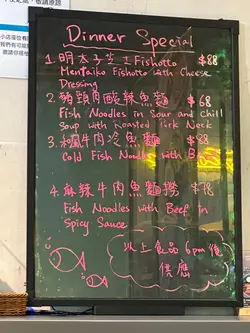 Dinner Special
1. 明太子芝士Fishotto $88
Mentaiko Fishotto with Cheese
Dressing
2. 豬頸肉酸辣魚麵 $68
Fish Noodles in Sour and chill
Soup with Roasted Pork Neck
3. 牛肉冷魚麵 $88
Cold Fish Noodles with
4. 麻辣牛肉魚麵撈 $78
Fish Noodles with Beef in
Spicy Sauce
以上食品6pm後
供應